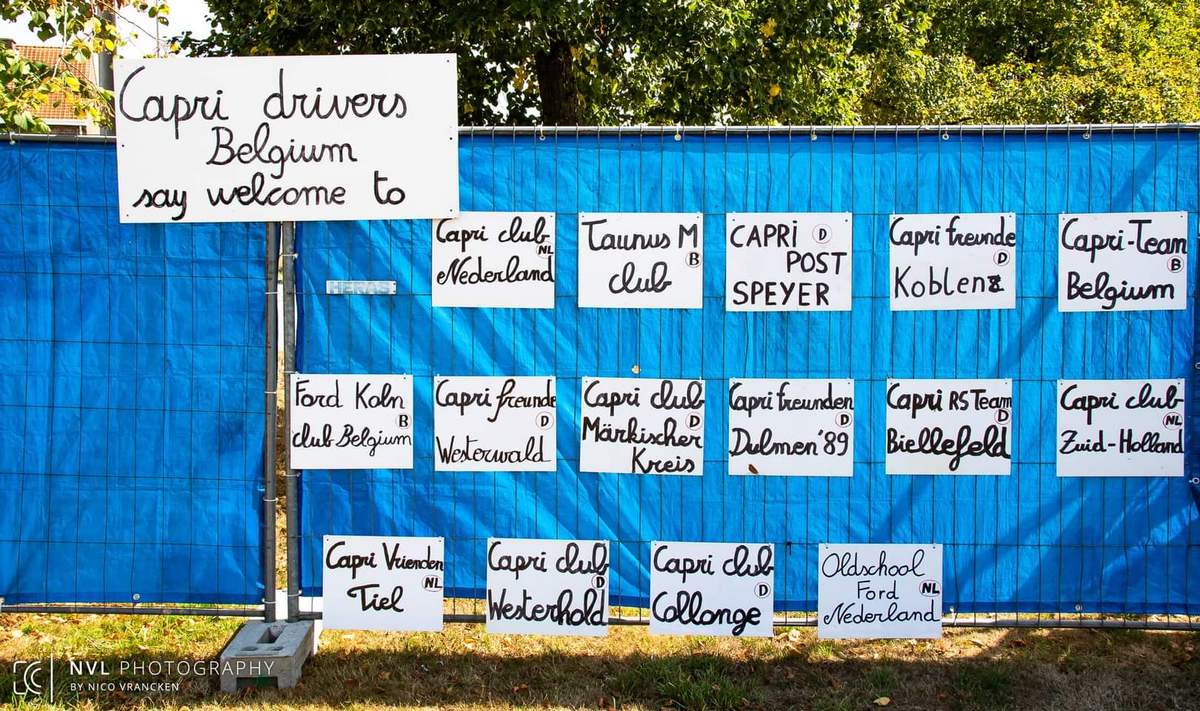 Capri drivers
Belgium
say welcome to
HERAS
Capri club
NL
Nederland
Taunus M
B
club
CAPRI D
POST
SPEYER
Capri freunde
D
Koblenz
Capri-Team
B
Belgium
Ford Koln
B
club Belgium
Capri freunde
D
Westerwald
Capri club
D
Märkischer
Kreis
Capri freunden
D
Dulmen '89
Capri RS Team
D
Biellefeld
Capri club
NL
Zuid-Holland
Capri Vrienden
NL
Tiel
Capri club
D
Westerhold
Capri club
D
Collonge
Oldschool
Ford NL
Nederland
NVL PHOTOGRAPHY
BY NICO VRANCKEN